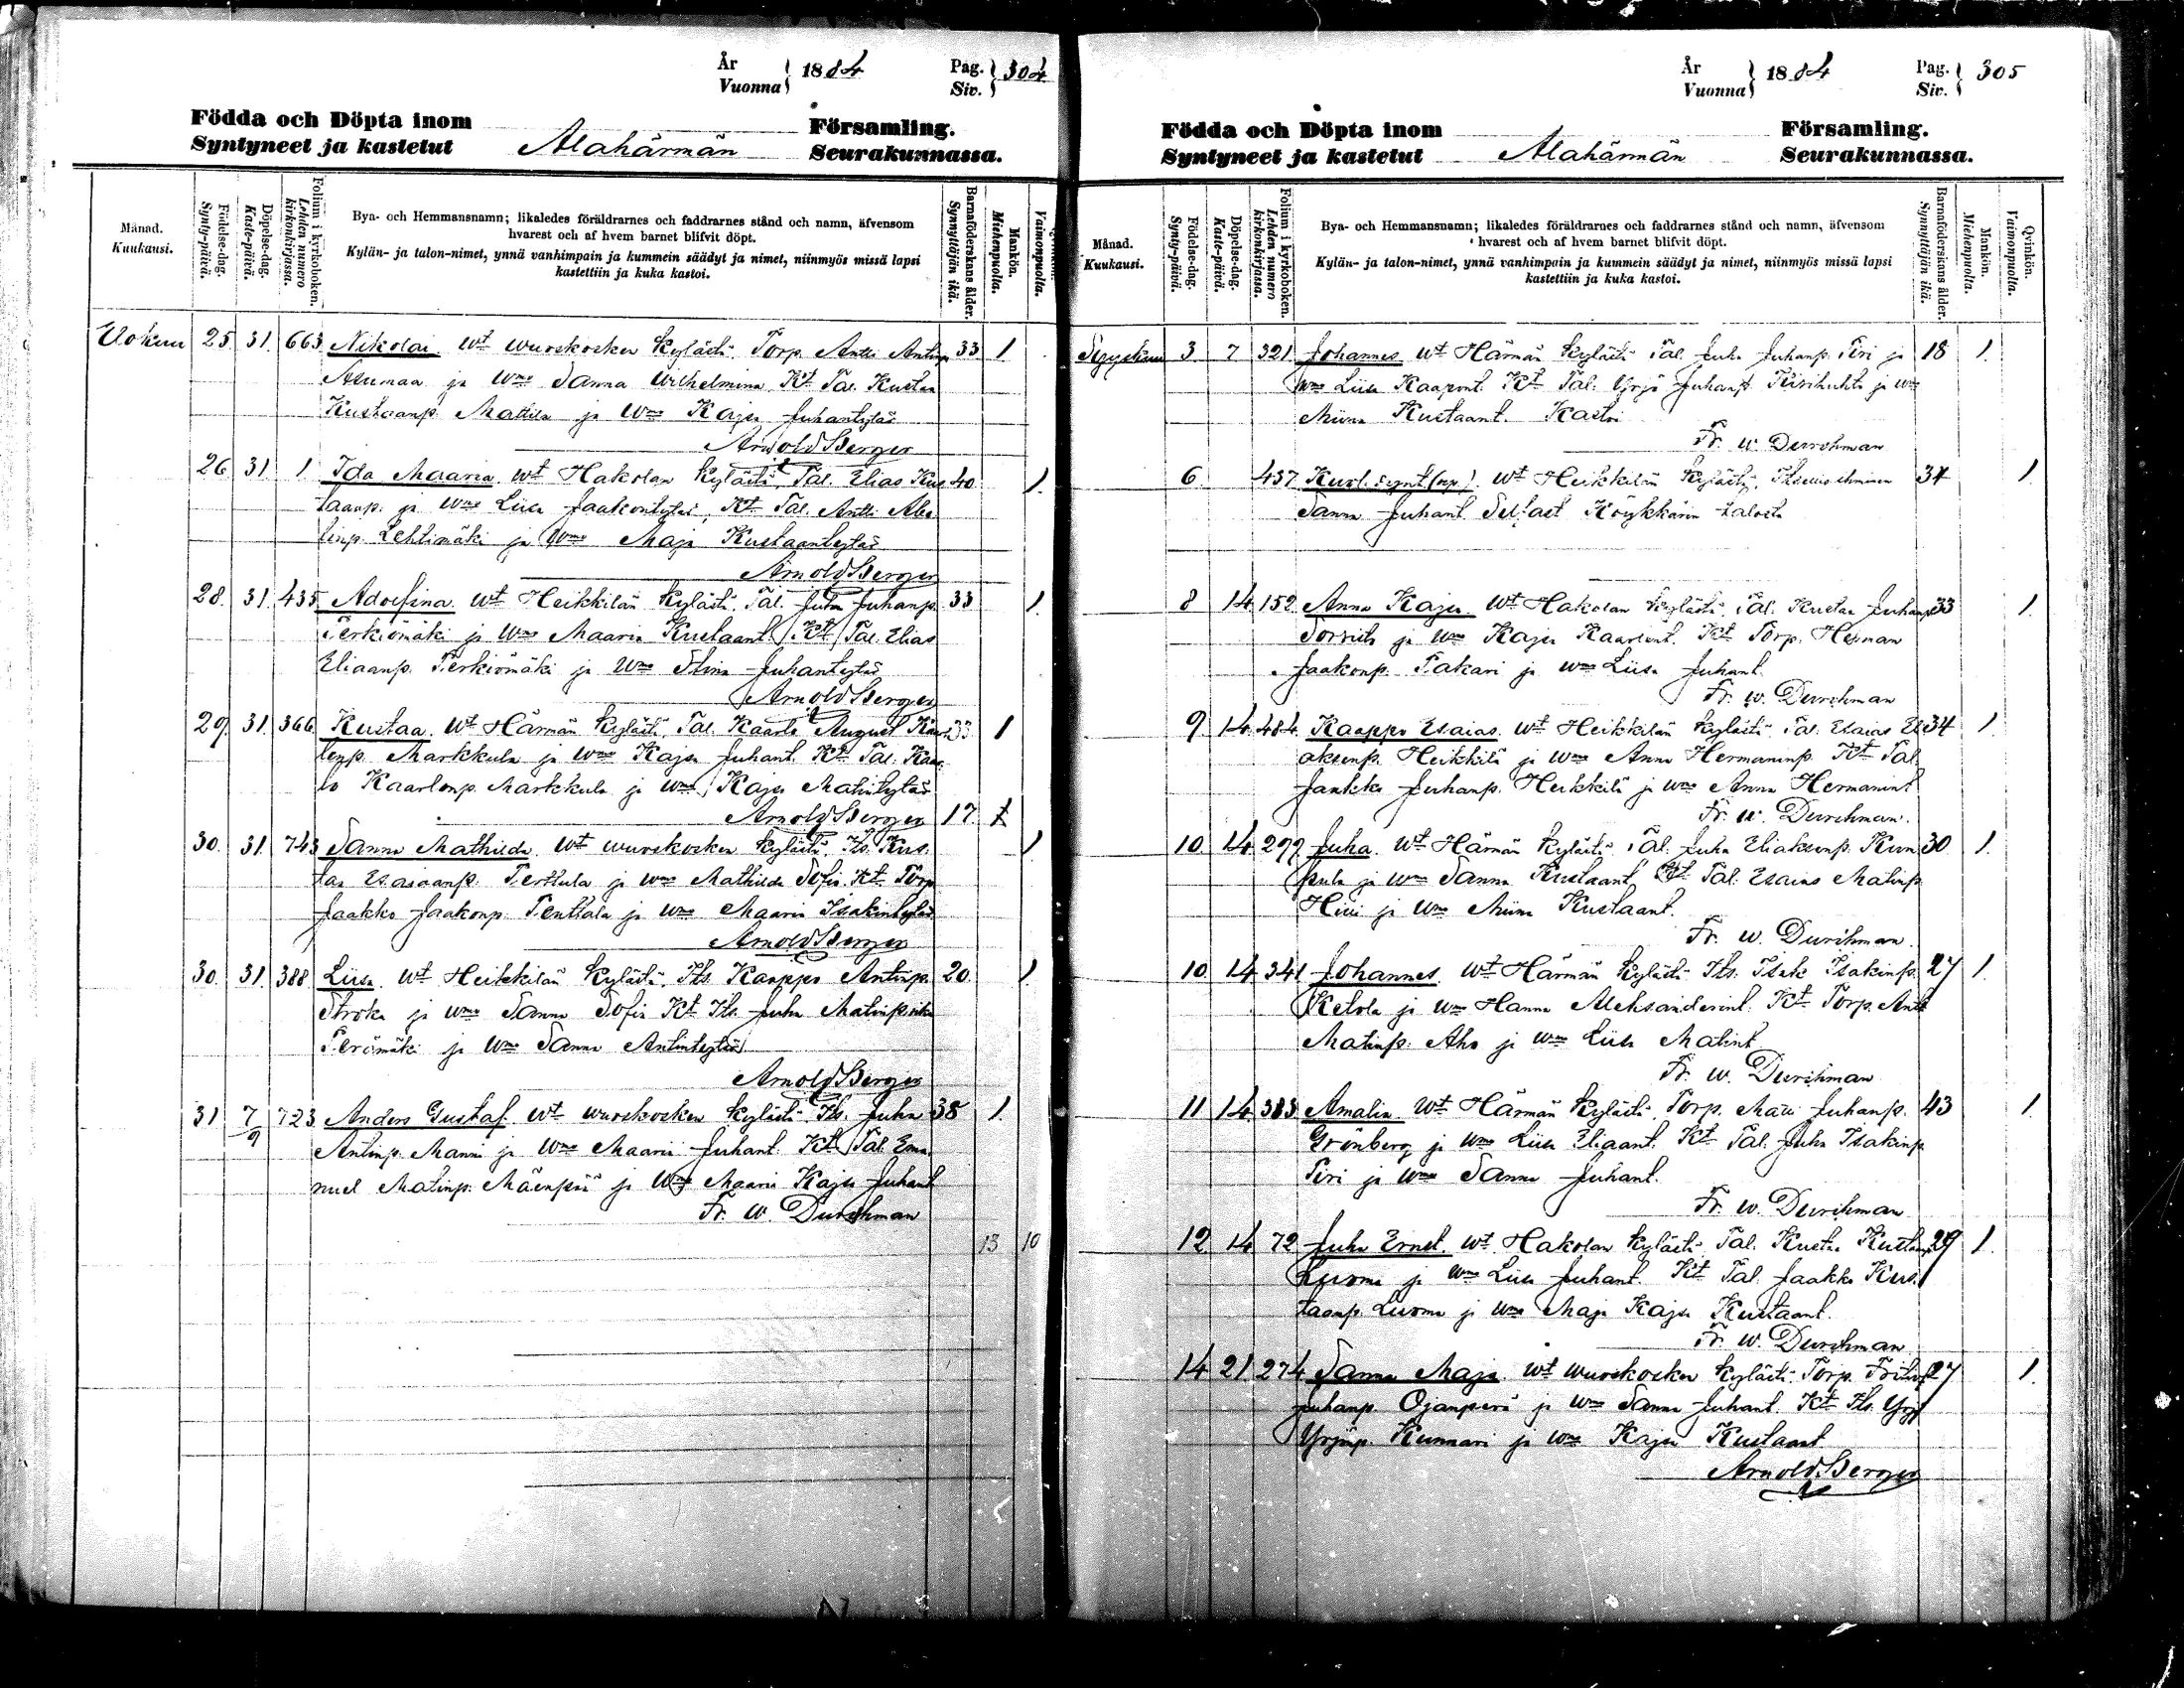 År
Vuonna } 1884
Pag.
Siv. } 304
Födda och Döpta inom Församling.
Syntyneet ja kastetut Alahärmän Seurakunnassa.
Månad.
Kuukausi.
Födelse-dag.
Synty-päivä.
Döpelse-dag.
Kaste-päivä.
Folium i kyrkoboken.
Lehden numero kirkonkirjassa.
Bya- och Hemmansnamn; likaledes föräldrarnes och faddrarnes stånd och namn, äfvensom
hvarest och af hvem barnet blifvit döpt.
Kylän- ja talon-nimet, ynnä vanhimpain ja kummein säädyt ja nimet, niinmyös missä lapsi
kastettiin ja kuka kastoi.
Barnaföderskans ålder.
Synnyttäjän ikä.
Mankön.
Miehenpuolta.
Vaimonpuolta.
Elokuu 25 31. 663 Nikolai. wt wuoskosken kyläst. Torp. Antti Antinp 33 1
ja wmo Sanna Wilhelmina Kt Tal. Kustaa
Kustaanp. Mattila ja wmo Kajsa Juhantytär
Arnold Berger
26 31. 1 Ida Maaria. wt Hakolan kyläst. Tal. Elias Kus 40 1.
taanp. ja wmo Liisa Jaakontytär, Kt Tal. Antti
linp. Lehtimäki ja wmo Maja Kustaantytär
Arnold Berger
28. 31. 435 Adolfina wt Heikkilän kyläst. Tal. Juha Juhanp. 33 1.
Perkiömäki ja wmo Maaria Kustaant. Kt Tal. Elias
Eliaanp. Perkiömäki ja wmo Stina Juhantytär
Arnold Berger
29. 31. 366 Kustaa. wt Härmän kyläst. Tal. Kaarle August Kaar 33 1
lenp. Markkula ja wmo Kajsa Juhant. Kt Tal. Kaar
lo Kaarlonp. Markkula ja wmo Kajsa Matintytär
Arnold Berger 17.
30. 31. 743 Sanna Mathilda. wt wuoskosken kyläst. Its. Kus
taa Esaiaanp. Perttula ja wmo Mathilda Sofia. Kt. Torp
Jaakko Jaakonp. Penttala ja wmo Maaria Isakintytär
Arnold Berger
30. 31. 388 Liisa. wt Heikkilän kyläst. Its. Kaappo Antinp. 20. 1.
Stroka ja wmo Sanna Sofia Kt Its. Juha Matinpoika
Perämäki ja wmo Sanna Antintytär
Arnold Berger
31 7/9 723 Anders Gustaf. wt wuoskosken kyläst. Its. Juha 38 1.
Antinp. Manni ja wmo Maaria Juhant. Kt Tal. Ema
nuel Matinp. Mäenpää ja wmo Maaria Kajsa Juhant
Fr. W. Durchman
13 10
År
Vuonna } 1884
Pag.
Siv. } 305
Födda och Döpta inom Församling.
Syntyneet ja kastetut Alahärmän Seurakunnassa.
Månad.
Kuukausi.
Födelse-dag.
Synty-päivä.
Döpelse-dag.
Kaste-päivä.
Folium i kyrkoboken.
Lehden numero kirkonkirjassa.
Bya- och Hemmansnamn; likaledes föräldrarnes och faddrarnes stånd och namn, äfvensom
hvarest och af hvem barnet blifvit döpt.
Kylän- ja talon-nimet, ynnä vanhimpain ja kummein säädyt ja nimet, niinmyös missä lapsi
kastettiin ja kuka kastoi.
Barnaföderskans ålder.
Synnyttäjän ikä.
Mankön.
Miehenpuolta.
Qvinkön.
Vaimonpuolta.
Syyskuu 3 7 321 Johannes wt Härmän kyläst. Tal. Juha Juhanp. Piri ja 18 1.
wmo Liisa Kaapont. Kt Tal. Yrjö Juhanp. ja wmo
Miina Kustaant. Kastoi
Fr. W. Durchman
6 437 Kuol. synt. (np). wt Heikkilän kyläst. Itsellis 34 1.
Sanna Juhant. Köykkärin talosta
8 14 152 Anna Kajsa. wt Hakolan kyläst. Tal. Kustaa Juhanp 33 1.
ja wmo Kajsa Kaarlont. Kt Torp. Herman
Jaakonp. Pakari ja wmo Liisa Juhant
Fr. W. Durchman
9 14 484 Kaappo Esaias. wt Heikkilän kyläst. Tal. Esaias 34 1.
aksenp. Heikkilä ja wmo Anna Hermaninp. Kt Tal.
Jaakko Juhanp. Heikkilä ja wmo Anna Hermanint
Fr. W. Durchman.
10 14 299 Juha. wt Härmän kyläst. Tal. Juha Eliaksenp. Kum 30 1.
pula ja wmo Sanna Kustaant. Kt Tal. Esaias Matinp.
ja wmo Miina Kustaant.
Fr. W. Durchman.
10 14 341 Johannes. wt Härmän kyläst. Its. Isak Isakinp. 27 1.
Ketola ja wmo Hanna Aleksanderint. Kt Torp. Antti
Matinp. Aho ja wmo Liisa Matint
Fr. W. Durchman
11 14 383 Amalia wt Härmän kyläst. Torp. Matti Juhanp. 43 1.
Grönberg ja wmo Liisa Eliaant. Kt Tal. Juha Isakinp
Piri ja wmo Sanna Juhant.
Fr. W. Durchman
12 14 72 Juha Ernst. wt Hakolan kyläst. Tal. Kustaa Kustaanp 29 1.
Luoma ja wmo Liisa Juhant. Kt Tal. Jaakko Kus
taanp. Luoma ja wmo Maja Kajsa Kustaant.
Fr. W. Durchman
14 21 274 Sanna Maja. wt wuoskosken kyläst. Torp. 27 1.
Juhanp. Ojanperä ja wmo Sanna Juhant. Kt Its. Yrjö
Yrjönp. Kunnari ja wmo Kajsa Kustaant
Arnold Berger